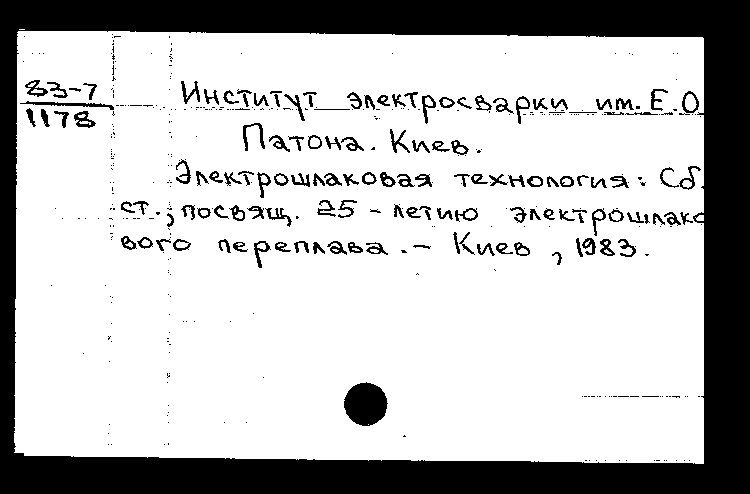 83-7
1178
Институт электросварки им. Е.О
Патона. Киев.
Электрошлаковая технология: Сб.
ст., посвящ. 25-летию электрошлако
вого переплава. - Киев, 1983.